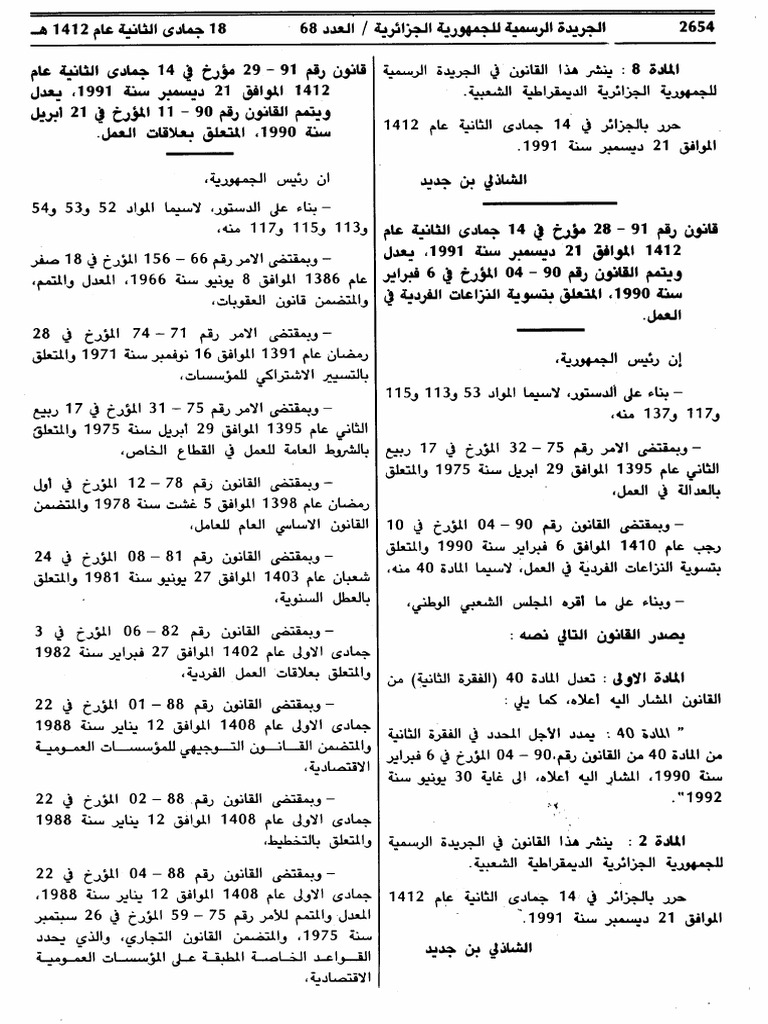 2654
الجريدة الرسمية للجمهورية الجزائرية / العدد 68
18 جمادى الثانية عام 1412 هـ
المادة 8 : ينشر هذا القانون في الجريدة الرسمية
للجمهورية الجزائرية الديمقراطية الشعبية.
حرر بالجزائر في 14 جمادى الثانية عام 1412
الموافق 21 ديسمبر سنة 1991.
الشاذلي بن جديد
قانون رقم 91 - 28 مؤرخ في 14 جمادى الثانية عام
1412 الموافق 21 ديسمبر سنة 1991، يعدل
ويتمم القانون رقم 90 - 04 المؤرخ في 6 فبراير
سنة 1990، المتعلق بتسوية النزاعات الفردية في
العمل.
إن رئيس الجمهورية،
– بناء على ألدستور، لاسيما المواد 53 و113 و115
و117 و137 منه،
– وبمقتضى الامر رقم 75 – 32 المؤرخ في 17 ربيع
الثاني عام 1395 الموافق 29 ابريل سنة 1975 والمتعلق
بالعدالة في العمل،
– وبمقتضى القانون رقم 90 – 04 المؤرخ في 10
رجب عام 1410 الموافق 6 فبراير سنة 1990 والمتعلق
بتسوية النزاعات الفردية في العمل، لاسيما المادة 40 منه،
– وبناء على ما أقره المجلس الشعبي الوطني،
يصدر القانون التالي نصه :
المادة الاولى : تعدل المادة 40 (الفقرة الثانية) من
القانون المشار اليه أعلاه، كما يلي :
" المادة 40 : يمدد الأجل المحدد في الفقرة الثانية
من المادة 40 من القانون رقم 90 – 04 المؤرخ في 6 فبراير
سنة 1990، المشار اليه أعلاه، الى غاية 30 يونيو سنة
1992".
المادة 2 : ينشر هذا القانون في الجريدة الرسمية
للجمهورية الجزائرية الديمقراطية الشعبية.
حرر بالجزائر في 14 جمادى الثانية عام 1412
الموافق 21 ديسمبر سنة 1991.
الشاذلي بن جديد
قانون رقم 91 - 29 مؤرخ في 14 جمادى الثانية عام
1412 الموافق 21 ديسمبر سنة 1991، يعدل
ويتمم القانون رقم 90 - 11 المؤرخ في 21 ابريل
سنة 1990، المتعلق بعلاقات العمل.
ان رئيس الجمهورية،
– بناء على الدستور، لاسيما المواد 52 و53 و54
و113 و115 و117 منه،
– وبمقتضى الامر رقم 66 – 156 المؤرخ في 18 صفر
عام 1386 الموافق 8 يونيو سنة 1966، المعدل والمتمم،
والمتضمن قانون العقوبات،
– وبمقتضى الامر رقم 71 – 74 المؤرخ في 28
رمضان عام 1391 الموافق 16 نوفمبر سنة 1971 والمتعلق
بالتسيير الاشتراكي للمؤسسات،
– وبمقتضى الامر رقم 75 – 31 المؤرخ في 17 ربيع
الثاني عام 1395 الموافق 29 أبريل سنة 1975 والمتعلق
بالشروط العامة للعمل في القطاع الخاص،
– وبمقتضى القانون رقم 78 – 12 المؤرخ في أول
رمضان عام 1398 الموافق 5 غشت سنة 1978 والمتضمن
القانون الاساسي العام للعامل،
– وبمقتضى القانون رقم 81 – 08 المؤرخ في 24
شعبان عام 1403 الموافق 27 يونيو سنة 1981 والمتعلق
بالعطل السنوية،
– وبمقتضى القانون رقم 82 – 06 المؤرخ في 3
جمادى الاولى عام 1402 الموافق 27 فبراير سنة 1982
والمتعلق بعلاقات العمل الفردية،
– وبمقتضى القانون رقم 88 – 01 المؤرخ في 22
جمادى الاولى عام 1408 الموافق 12 يناير سنة 1988
والمتضمن القانون التوجيهي للمؤسسات العمومية
الاقتصادية،
– وبمقتضى القانون رقم 88 – 02 المؤرخ في 22
جمادى الاولى عام 1408 الموافق 12 يناير سنة 1988
والمتعلق بالتخطيط،
– وبمقتضى القانون رقم 88 – 04 المؤرخ في 22
جمادى الاولى عام 1408 الموافق 12 يناير سنة 1988،
المعدل والمتمم للأمر رقم 75 – 59 المؤرخ في 26 سبتمبر
سنة 1975، والمتضمن القانون التجاري، والذي يحدد
القواعد الخاصة المطبقة على المؤسسات العمومية
الاقتصادية،